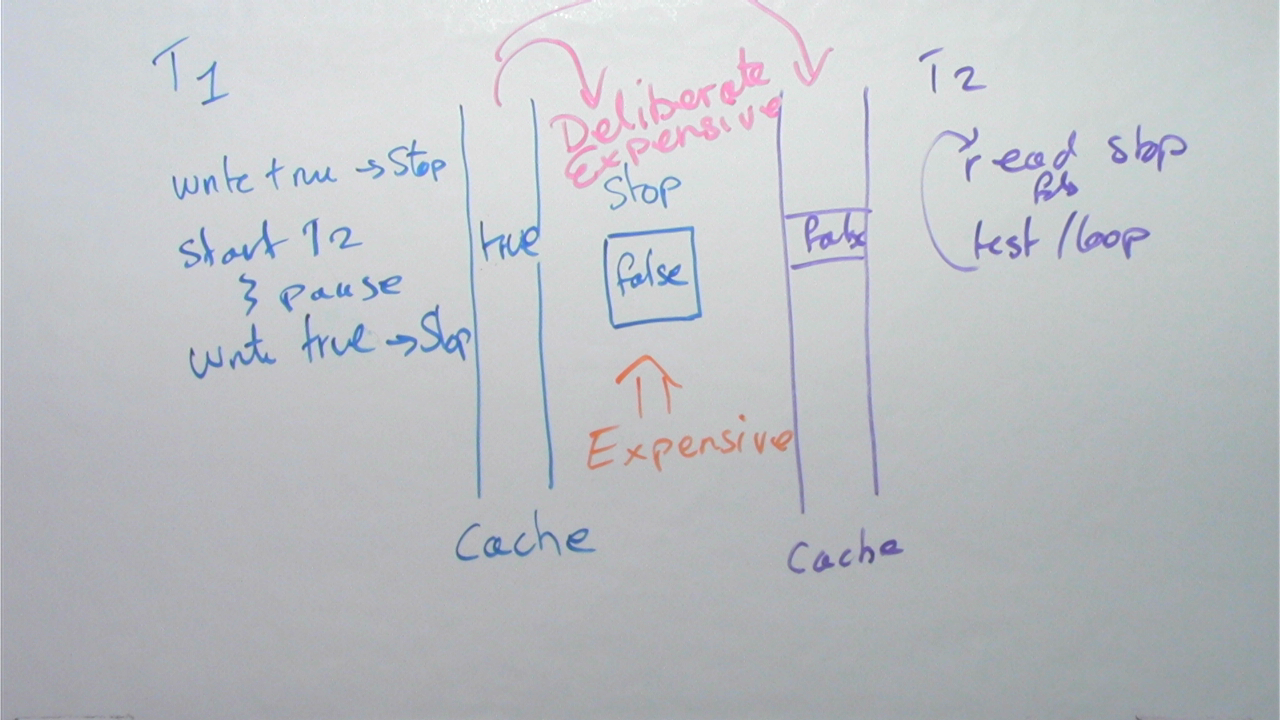 T1
write true → Stop
start T2
} pause
write true → Stop
true
Cache
Deliberate
Expensive
Stop
false
Expensive
false
Cache
T2
read stop
test / loop